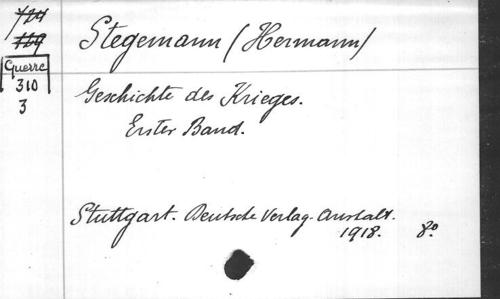 Stegemann (Hermann)
Guerre
310
3
Geschichte des Krieges.
Erster Band.
Stuttgart. Deutsche Verlag. Anstalt.
1918. 8º